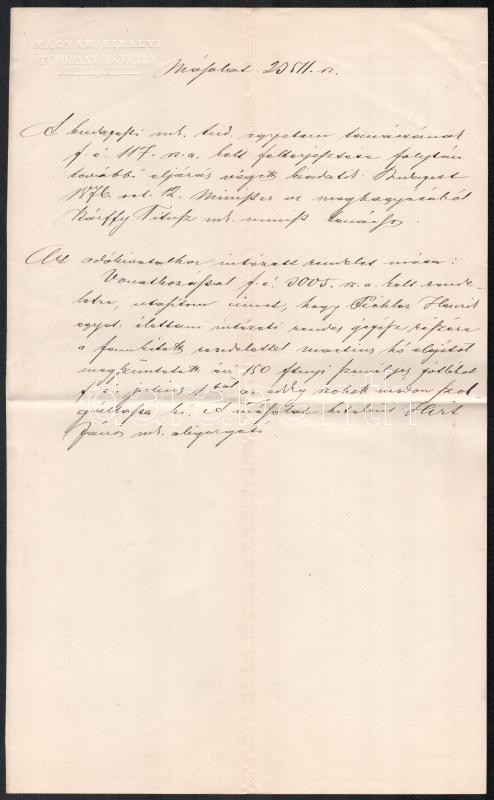 MAGYAR KIRÁLYI
TUDOMÁNY-EGYETEM
Másolat 20511. sz.
A budapesti m. tud. egyetem tanácsának
f. é. 117. sz. a. kelt felterjesztése folytán
további eljárás végett kiadatik. Budapest
1876. oct. 12. Miniszter úr meghagyásából
Károlyi Titusz m. minist. tanácsos.
Az adóhivatalhoz intézett rendelet mása:
Vonatkozással f. é. 3005. sz. a. kelt rende-
letre, utasítom címet, hogy Pichler Henrik
egyet. élettani intézeti rendes gépész részére
a fennidézett rendelettel martius hó elejétől
megszüntetett évi 150 frtnyi személyes pótlékot
f. é. július 1től az eddig szokott módon szol-
gáltassa ki. A másolat hiteléül Hert
János m. aligazgató.
darabanth